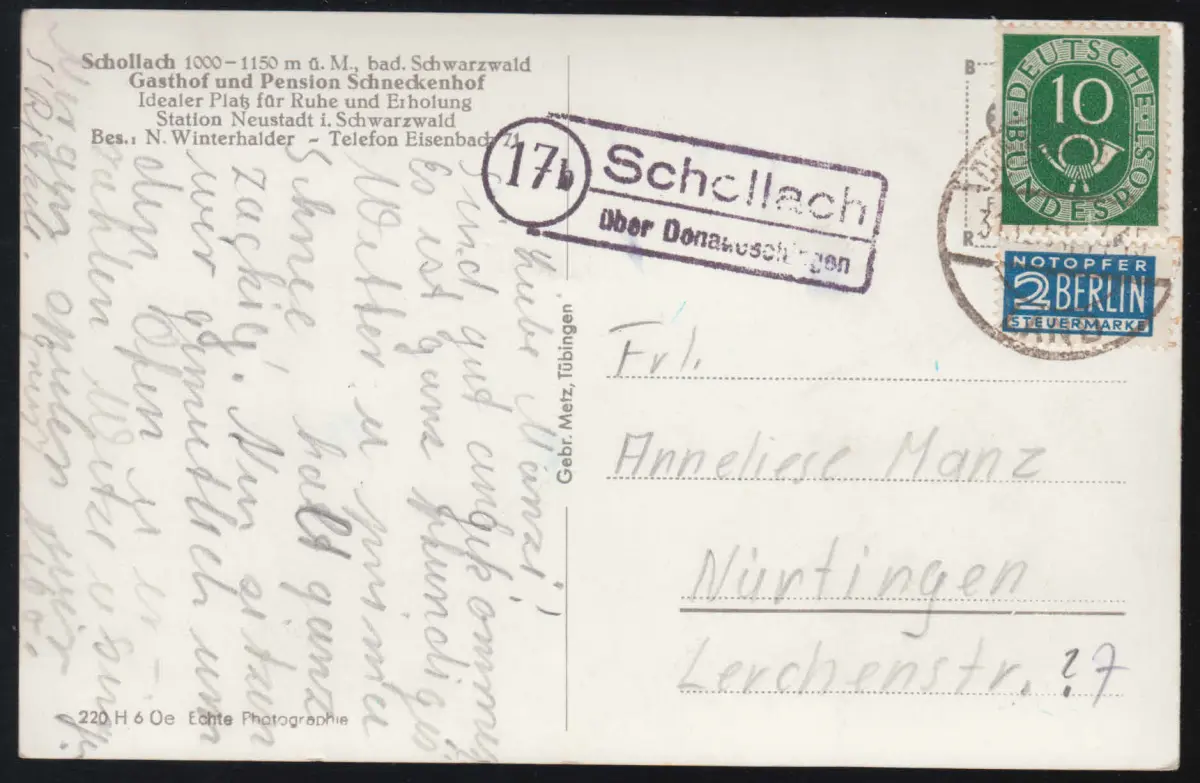 Schollach 1000–1150 m ü. M., bad. Schwarzwald
Gasthof und Pension Schneckenhof
Idealer Platz für Ruhe und Erholung
Station Neustadt i. Schwarzwald
Bes.: N. Winterhalder – Telefon Eisenbach 71
17b
Schollach
über Donaueschingen
DEUTSCHE BUNDESPOST
10
NOTOPFER
2 BERLIN
STEUERMARKE
LAND
Liebe Manzi!
Sind gut angekommen
Es ist ganz pfundiges
Wetter u prima
Schnee, halt ganz
zackig. Nun sitzen
wir gemütlich um
den Ofen
Witze u sin
Gebr. Metz, Tübingen
Frl.
Anneliese Manz
Nürtingen
Lerchenstr. 27
220 H 6 Oe Echte Photographie